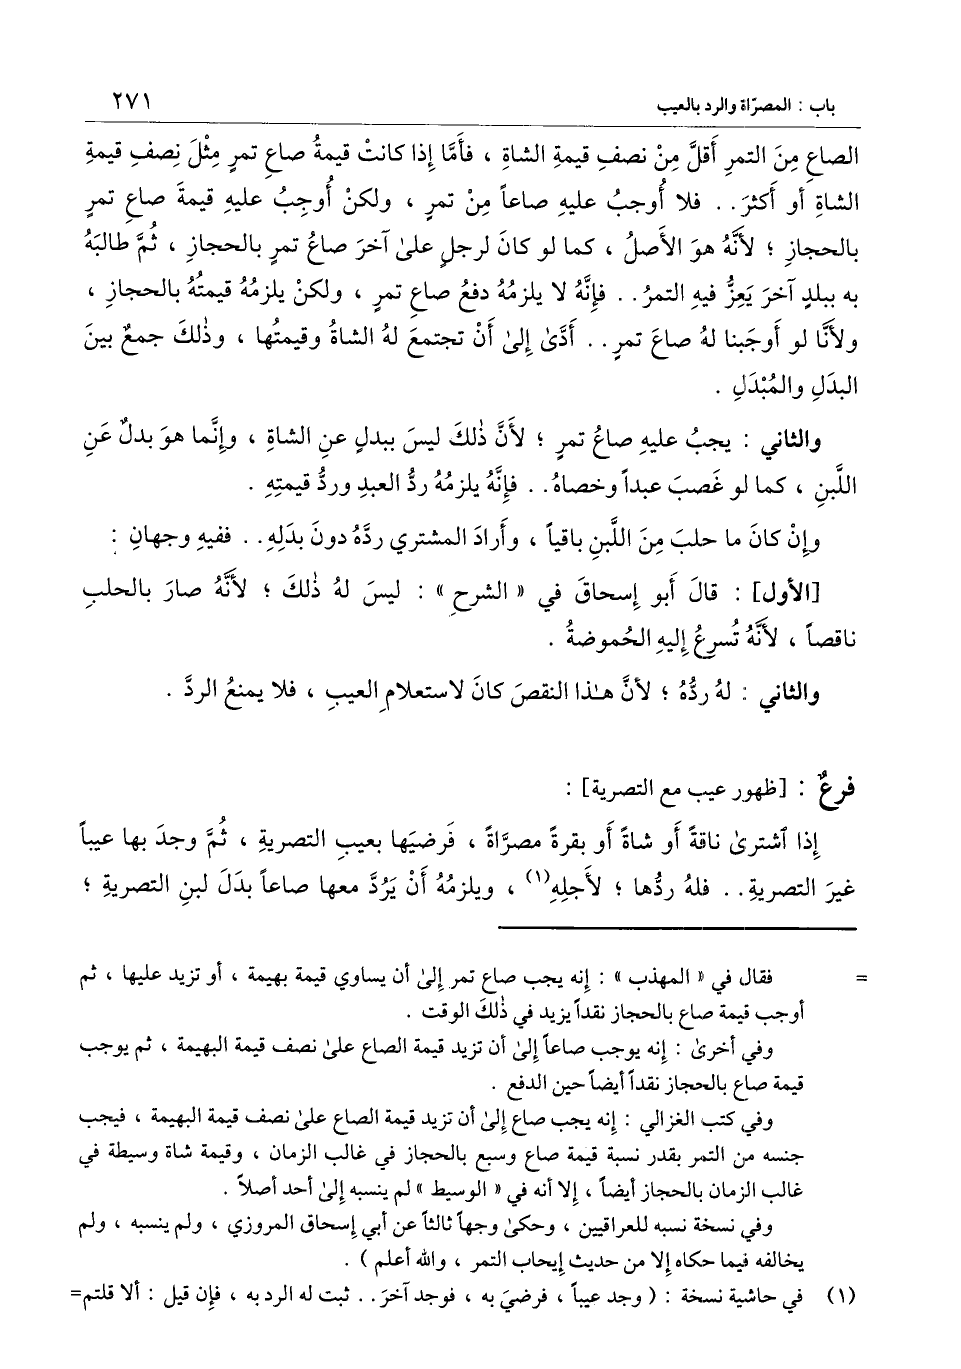 باب : المصرّاة والرد بالعيب ٢٧١
الصاعِ مِنَ التمرِ أَقلَّ مِنْ نصفِ قيمةِ الشاةِ ، فأَمَّا إِذا كانتْ قيمةُ صاعِ تمرٍ مِثْلَ نِصفِ قيمةِ
الشاةِ أو أكثرَ . . فلا أُوجبُ عليهِ صاعاً مِنْ تمرٍ ، ولكنْ أُوجِبُ عليهِ قيمةَ صاعِ تمرٍ
بالحجازِ ؛ لأَنَّهُ هوَ الأَصلُ ، كما لو كانَ لرجلٍ علىٰ آخرَ صاعُ تمرٍ بالحجازِ ، ثُمَّ طالبَهُ
به ببلدٍ آخرَ يَعِزُّ فيهِ التمرُ . . فإِنَّهُ لا يلزمُهُ دفعُ صاعِ تمرٍ ، ولكنْ يلزمُهُ قيمتُهُ بالحجازِ ،
ولأنَّا لو أَوجَبنا لهُ صاعَ تمرٍ . . أَدَّىٰ إِلىٰ أَنْ تجتمعَ لهُ الشاةُ وقيمتُها ، وذٰلكَ جمعٌ بينَ
البدَلِ والمُبْدَلِ .
والثاني : يجبُ عليهِ صاعُ تمرٍ ؛ لأَنَّ ذٰلكَ ليسَ ببدلٍ عنِ الشاةِ ، وإِنَّما هوَ بدلٌ عَنِ
اللَّبنِ ، كما لو غَصبَ عبداً وخصاهُ . . فإِنَّهُ يلزمُهُ ردُّ العبدِ وردُّ قيمتِهِ .
وإنْ كانَ ما حلبَ مِنَ اللَّبنِ باقياً ، وأَرادَ المشتري ردَّهُ دونَ بدَلِهِ . . ففيهِ وجهانِ :
[الأول] : قالَ أَبو إِسحاقَ في « الشرحِ » : ليسَ لهُ ذٰلكَ ؛ لأَنَّهُ صارَ بالحلبِ
ناقصاً ، لأَنَّهُ تُسرعُ إِليهِ الحُموضةُ .
والثاني : لهُ ردُّهُ ؛ لأنَّ هـٰذا النقصَ كانَ لاستعلامِ العيبِ ، فلا يمنعُ الردَّ .
فرعٌ : [ظهور عيب مع التصرية] :
إِذا ٱشترىٰ ناقةً أَو شاةً أَو بقرةً مصرَّاةً ، فَرضيَها بعيبِ التصريةِ ، ثُمَّ وجدَ بها عيباً
غيرَ التصريةِ . . فلهُ ردُّها ؛ لأَجلِهِ(١) ، ويلزمُهُ أَنْ يَرُدَّ معها صاعاً بدَلَ لبنِ التصريةِ ؛
= فقال في « المهذب » : إنه يجب صاع تمر إلىٰ أن يساوي قيمة بهيمة ، أو تزيد عليها ، ثم
أوجب قيمة صاع بالحجاز نقداً يزيد في ذٰلكَ الوقت .
وفي أخرىٰ : إنه يوجب صاعاً إلىٰ أن تزيد قيمة الصاع علىٰ نصف قيمة البهيمة ، ثم يوجب
قيمة صاع بالحجاز نقداً أيضاً حين الدفع .
وفي كتب الغزالي : إنه يجب صاع إلىٰ أن تزيد قيمة الصاع علىٰ نصف قيمة البهيمة ، فيجب
جنسه من التمر بقدر نسبة قيمة صاع وسبع بالحجاز في غالب الزمان ، وقيمة شاة وسيطة في
غالب الزمان بالحجاز أيضاً ، إلا أنه في « الوسيط » لم ينسبه إلىٰ أحد أصلاً .
وفي نسخة نسبه للعراقيين ، وحكىٰ وجهاً ثالثاً عن أبي إسحاق المروزي ، ولم ينسبه ، ولم
يخالفه فيما حكاه إلا من حديث إيجاب التمر ، والله أعلم ) .
(١) في حاشية نسخة : ( وجد عيباً ، فرضيَ به ، فوجد آخرَ . . ثبت له الرد به ، فإن قيل : ألا قلتم=